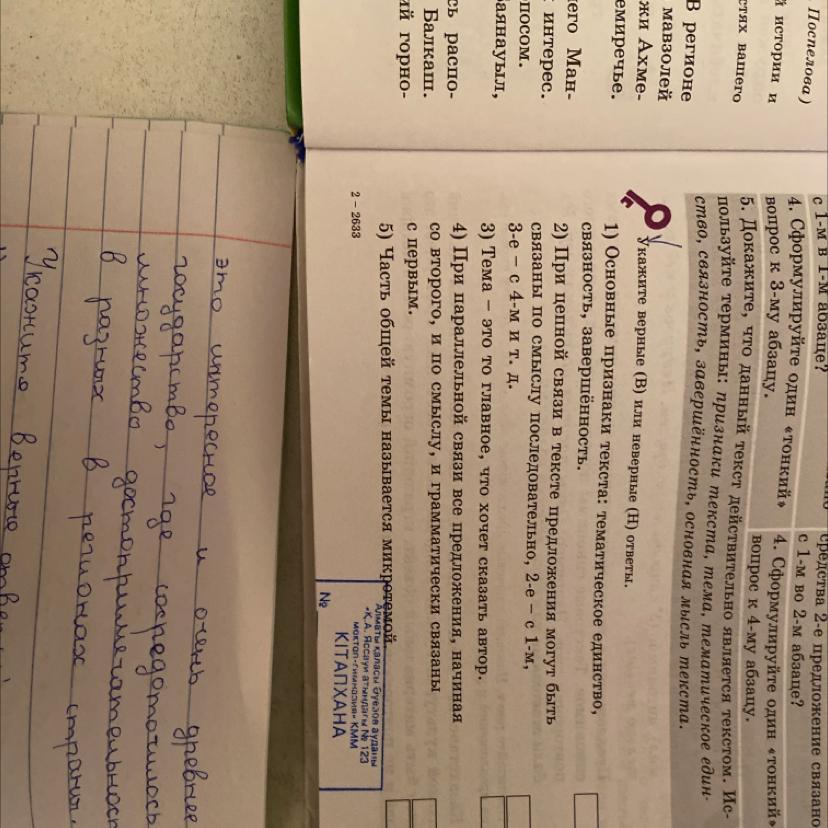 Поспелова)
й истории и
стях вашего
В регионе
мавзолей
жи Ахме-
емиречье.
кого Ман-
интерес.
ппосом.
аянауыл,
сь распо-
Балкаш.
ий горно-
с 1-м в 1-м абзаце?
4. Сформулируйте один «тонкий»
вопрос к 3-му абзацу.
средства 2-е предложение связано
с 1-м во 2-м абзаце?
4. Сформулируйте один «тонкий»
вопрос к 4-му абзацу.
5. Докажите, что данный текст действительно является текстом. Ис-
пользуйте термины: признаки текста, тема, тематическое един-
ство, связность, завершённость, основная мысль текста.
Укажите верные (В) или неверные (Н) ответы.
1) Основные признаки текста: тематическое единство,
связность, завершённость.
2) При цепной связи в тексте предложения могут быть
связаны по смыслу последовательно, 2-е – с 1-м,
3-е – с 4-м и т. д.
3) Тема – это то главное, что хочет сказать автор.
4) При параллельной связи все предложения, начиная
со второго, и по смыслу, и грамматически связаны
с первым.
5) Часть общей темы называется микротемой
2 – 2633
Алматы қаласы Әуезов ауданы
«Қ.А. Яссауи атындағы № 123
мектеп-гимназия» КММ
КІТАПХАНА
№
это интересное и очень древнее
государство, где сосредоточилось
множество достопримечательност
в разных в регионах страны.
Укажите верные ответы